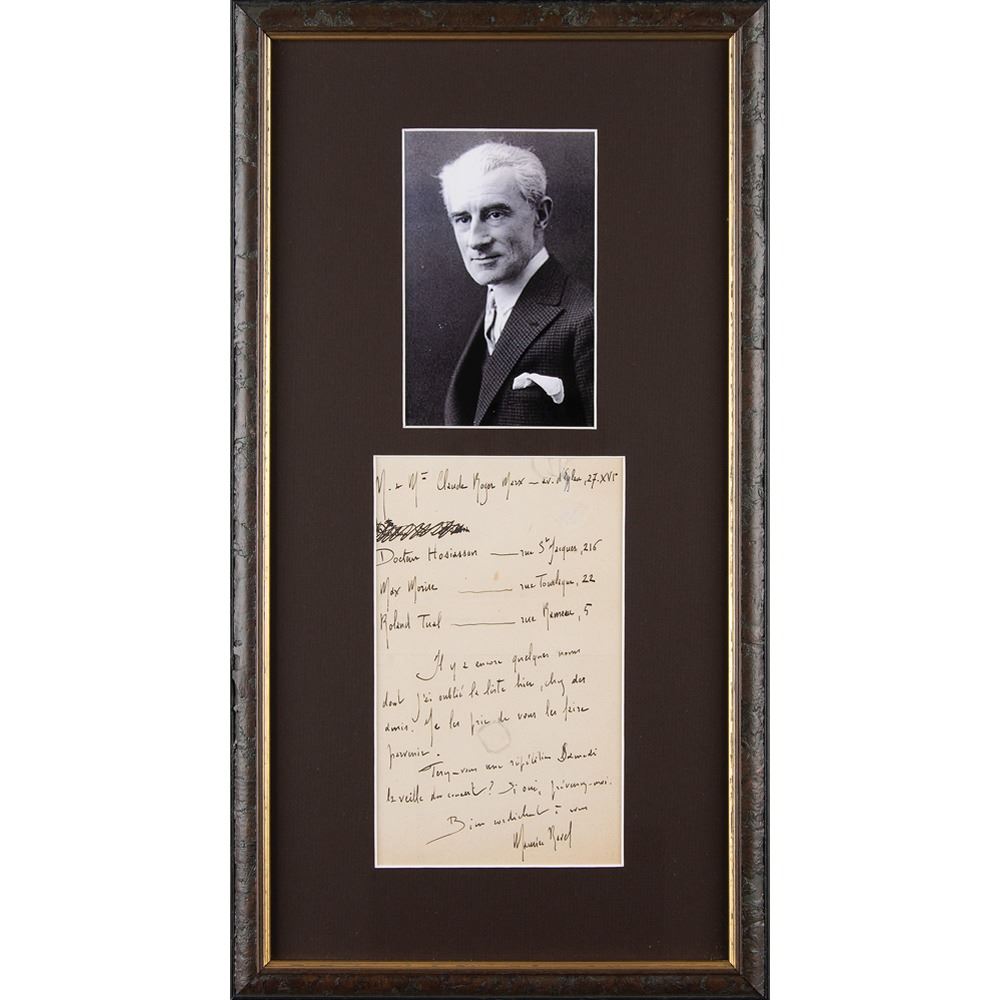 M. & Mme Claude Roger Marx — av. d'Eylau, 27. XVIe
Docteur Hosiasson — rue St Jacques, 216
Max Morise — rue Tourlaque, 22
Roland Tual — rue Rameau, 5
Il y a encore quelques noms
dont j'ai oublié la liste hier, chez des
amis. Je les prie de vous les faire
parvenir.
une répétition Samedi
la veille du concert? Si oui, prévenez-moi.
Bien cordialement à vous
Maurice Ravel